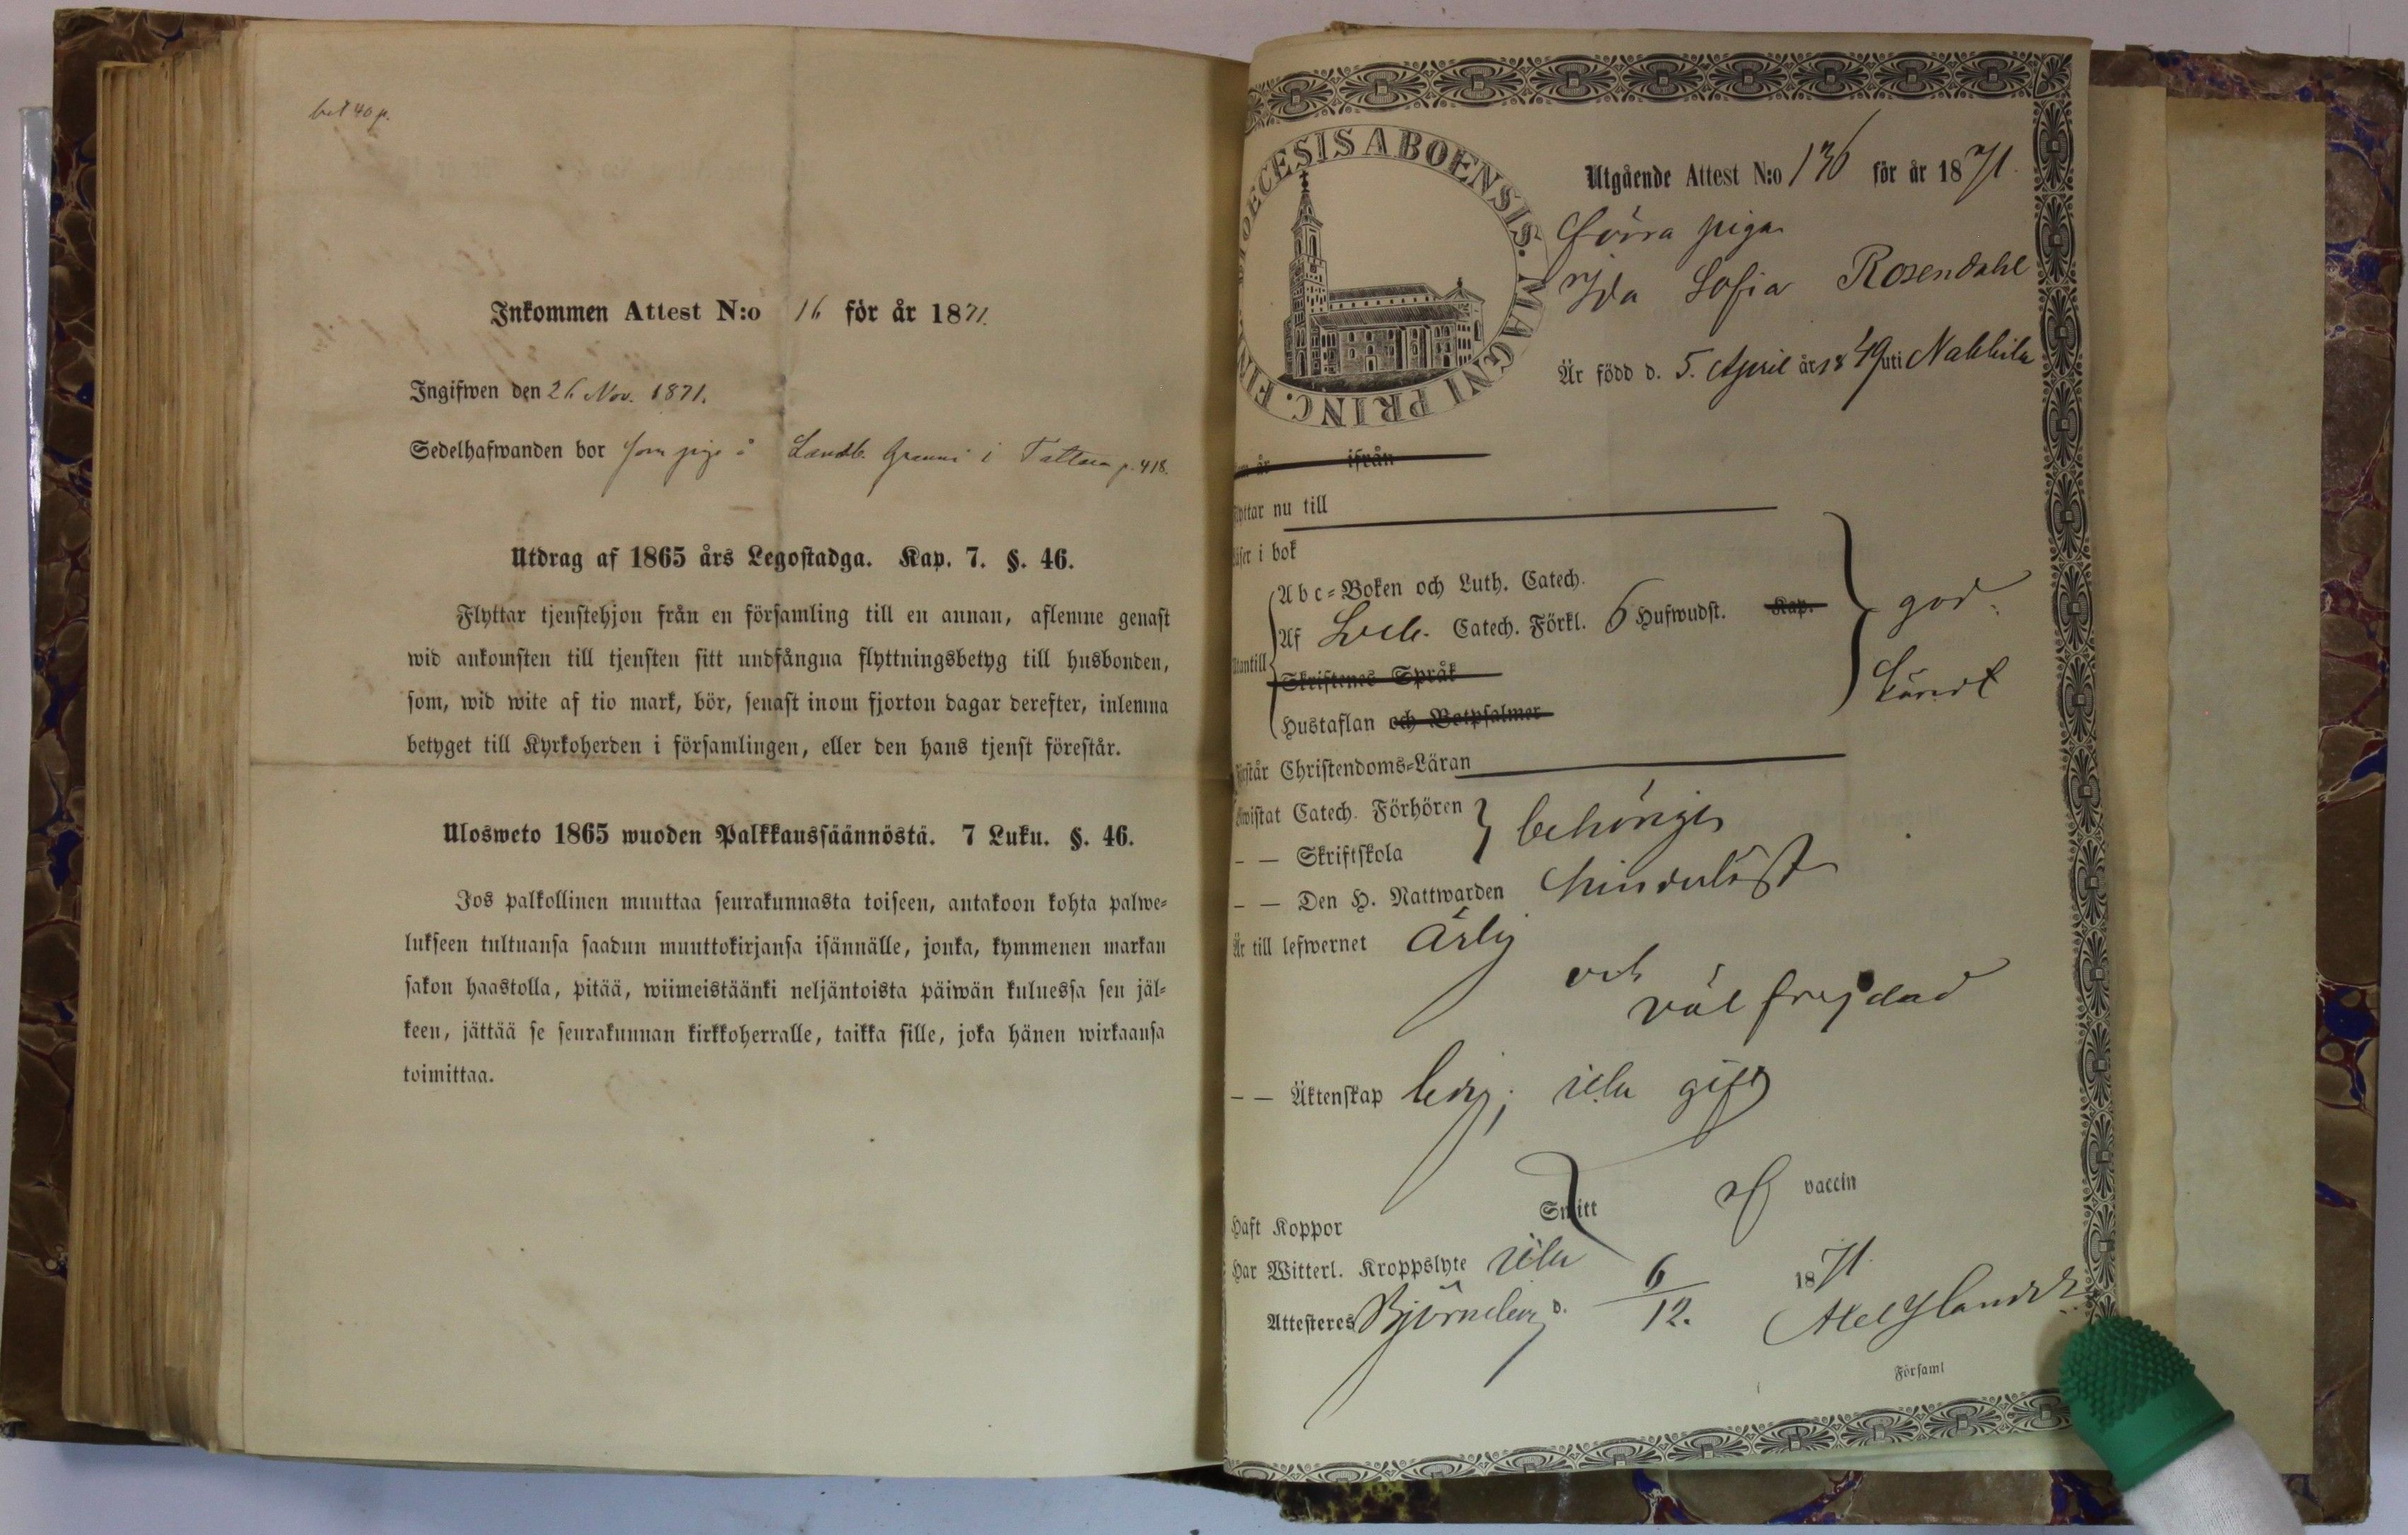 bet 40 p.
Inkommen Attest N:o 16 för år 1871.
Ingifwen den 26 Nov. 1871.
Sedelhafwanden bor som piga å Landb. Granni i Tattara p. 418.
Utdrag af 1865 års Legostadga. Kap. 7. §. 46.
Flyttar tjenstehjon från en församling till en annan, aflemne genast
wid ankomsten till tjensten sitt undfångna flyttningsbetyg till husbonden,
som, wid wite af tio mark, bör, senast inom fjorton dagar derefter, inlemna
betyget till Kyrkoherden i församlingen, eller den hans tjenst förestår.
Ulosweto 1865 wuoden Palkkaussäännöstä. 7 Luku. §. 46.
Jos palkollinen muuttaa seurakunnasta toiseen, antakoon kohta palwe-
lukseen tultuansa saadun muuttokirjansa isännälle, jonka, kymmenen markan
sakon haastolla, pitää, wiimeistäänki neljäntoista päiwän kuluessa sen jäl-
keen, jättää se seurakunnan kirkkoherralle, taikka sille, joka hänen wirkaansa
toimittaa.
DIOECESIS ABOENSIS. MAGNI PRINC. FIN
Utgående Attest N:o 136 för år 1871.
förra pigan
Ida Sofia Rosendahl
Är född d. 5. April år 1849 uti Nakkila
år ifrån
Flyttar nu till
Läser i bok
Abc-Boken och Luth. Catech.
Af Catech. Förkl. 6 Hufwudst. Kap.
god
Utantill
Skriftenes Språk
känd
Hustaflan och Botpsalmer
Förstår Christendoms-Läran
Bewistat Catech. Förhören
behörigen
– – Skriftskola
– – Den H. Nattwarden hinderlöst
Är till lefwernet ärlig
och
väl frejdad
– – Äktenskap ledig; icke gift
Haft Koppor Smitt af vaccin
Har Witterl. Kroppslyte icke
Attesteres Björneborg d. 6/12. 1871
Axel Ylander
Församl